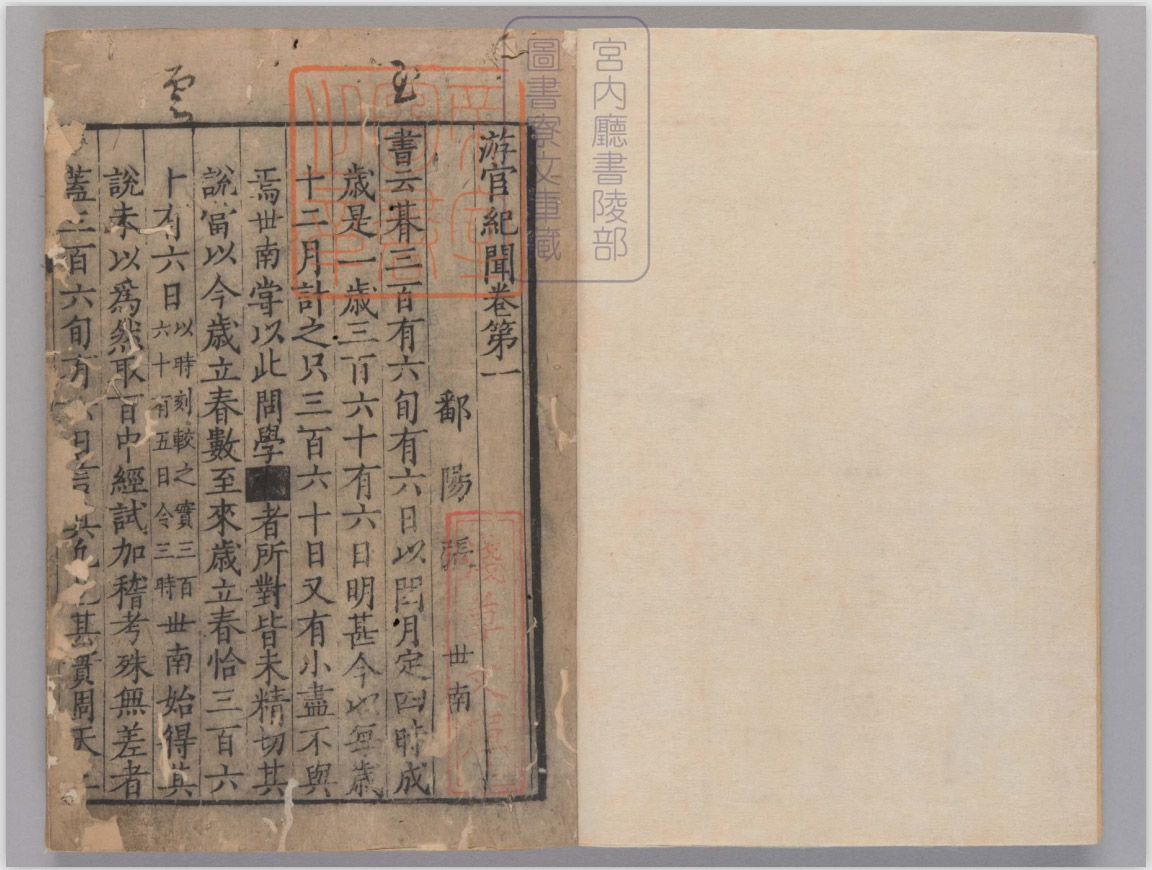 宮内廳書陵部
圖書寮文庫藏
游官紀聞卷第一
鄱陽張世南
書云朞三百有六旬有六日以閏月定四時成
歲是一歲三百六十有六日明甚今以每歲
十二月計之只三百六十日又有小盡不與
焉世南嘗以此問學者所對皆未精切其
說當以今歲立春數至來歲立春恰三百六
十有六日以時刻較之實三百六十有五日令三時世南始得其
說未以為然取百中經試加稽考殊無差者
蓋三百六旬有六日言其